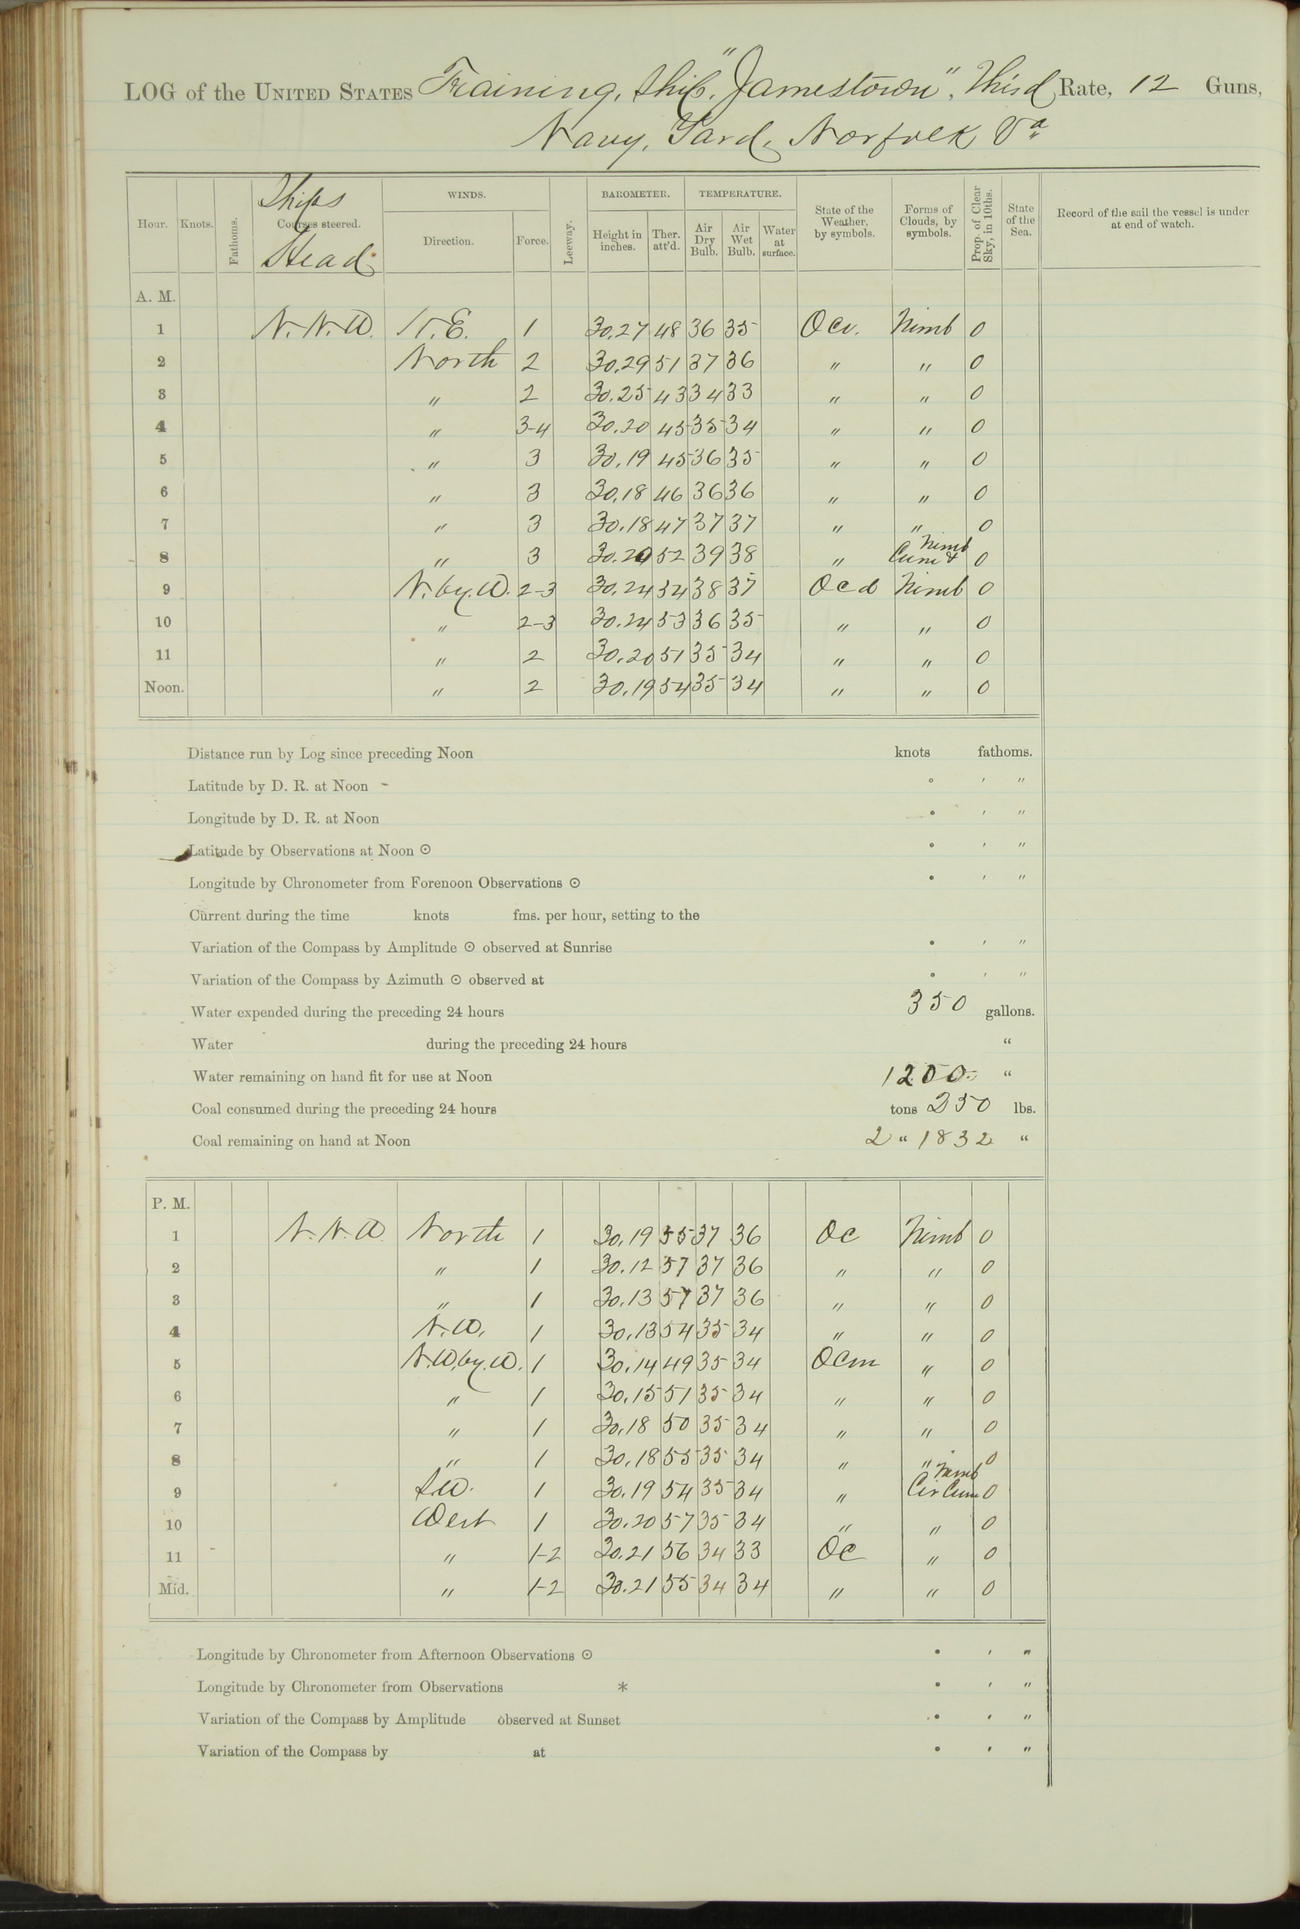 LOG of the UNITED STATES Training Ship "Jamestown", Third Rate, 12 Guns,
Navy, Yard, Norfolk Va
Hour. Knots. Fathoms. Ships Courses steered. Head WINDS. Direction. Force. Leeway. BAROMETER. Height in inches. Ther. att'd. TEMPERATURE. Air Dry Bulb. Air Wet Bulb. Water at surface. State of the Weather, by symbols. Forms of Clouds, by symbols. Prop. of Clear Sky, in 10ths. State of the Sea. Record of the sail the vessel is under at end of watch.
A. M.
1 N.N.W. N.E. 1 30.27 48 36 35 Ocv. Nimb 0
2 North 2 30.29 51 37 36 " " 0
3 " 2 30.25 43 34 33 " " 0
4 " 3-4 30.20 45 35 34 " " 0
5 " 3 30.19 45 36 35 " " 0
6 " 3 30.18 46 36 36 " " 0
7 " 3 30.18 47 37 37 " " 0
8 " 3 30.20 52 39 38 " Cum & Nimb 0
9 N. by. W. 2-3 30.24 54 38 37 Ocd Nimb 0
10 " 2-3 30.24 53 36 35 " " 0
11 " 2 30.20 51 35 34 " " 0
Noon. " 2 30.19 54 35 34 " " 0
Distance run by Log since preceding Noon knots fathoms.
Latitude by D. R. at Noon ° ′ ″
Longitude by D. R. at Noon ° ′ ″
Latitude by Observations at Noon ⊙ ° ′ ″
Longitude by Chronometer from Forenoon Observations ⊙ ° ′ ″
Current during the time knots fms. per hour, setting to the
Variation of the Compass by Amplitude ⊙ observed at Sunrise ° ′ ″
Variation of the Compass by Azimuth ⊙ observed at ° ′ ″
Water expended during the preceding 24 hours 350 gallons.
Water during the preceding 24 hours "
Water remaining on hand fit for use at Noon 1200 "
Coal consumed during the preceding 24 hours tons 250 lbs.
Coal remaining on hand at Noon 2 " 1832 "
P. M.
1 N.N.W. North 1 30.19 55 37 36 Oc Nimb 0
2 " 1 30.12 57 37 36 " " 0
3 " 1 30.13 57 37 36 " " 0
4 N.W. 1 30.13 54 35 34 " " 0
5 N.W. by. W. 1 30.14 49 35 34 Ocm " 0
6 " 1 30.15 51 35 34 " " 0
7 " 1 30.18 50 35 34 " " 0
8 " 1 30.18 55 35 34 " " 0
9 S.W. 1 30.19 54 35 34 " Nimb Cir Cum 0
10 West 1 30.20 57 35 34 " " 0
11 " 1-2 30.21 56 34 33 Oc " 0
Mid. " 1-2 30.21 55 34 34 " " 0
Longitude by Chronometer from Afternoon Observations ⊙ ° ′ ″
Longitude by Chronometer from Observations * ° ′ ″
Variation of the Compass by Amplitude observed at Sunset ° ′ ″
Variation of the Compass by at ° ′ ″